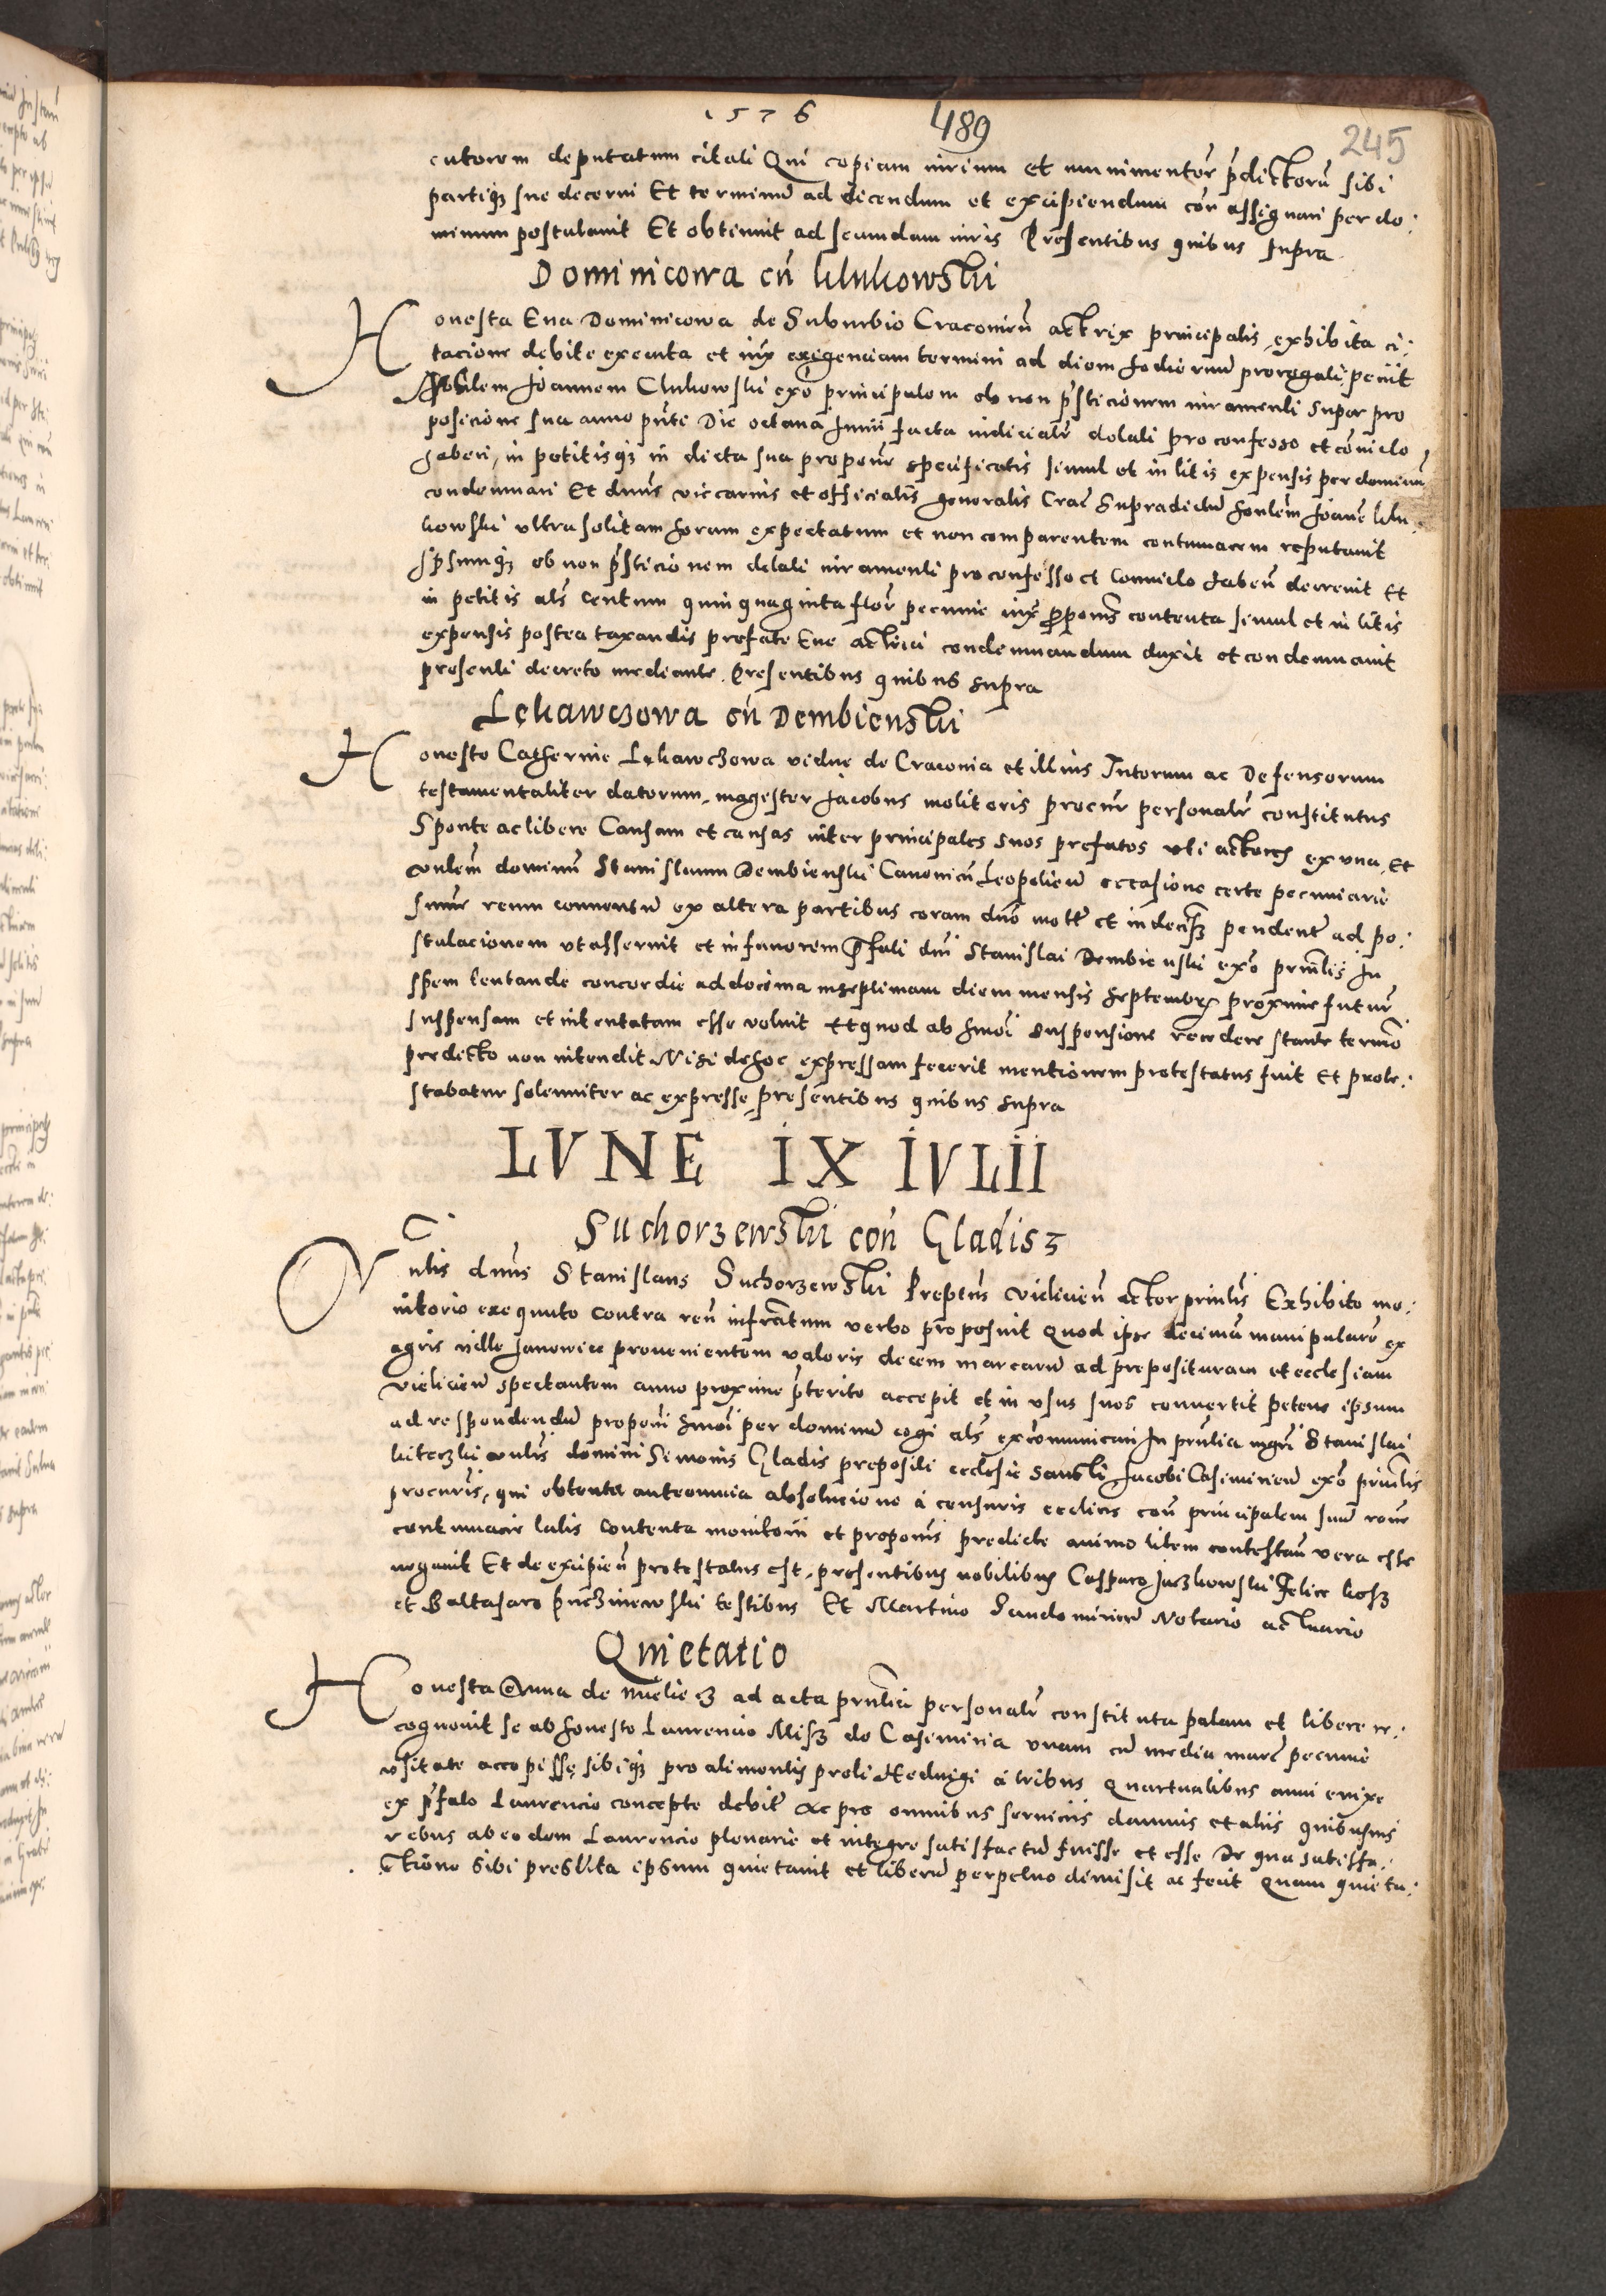 1576 489 245
cutorem deputatum citati Qui copiam iurium et munimentor̃ p̃dictorũ sibi
partiqȝ sue decerni Et terminũ ad dicendum et excipiendum coñ assignari per do:
minum postulauit Et obtinuit ad secundam iuris Presentibus quibus supra
Dominicowa cũ klukowski
Honesta Eua Dominicowa de Suburbio Cracouieñ actrix principalis, exhibita ci:
tacione debite executa et iux̃ exigenciam termini ad diem hodiernũ prorogati, petiit
Nobilem Joannem Clukowski exõ principalem ob non p̃sticionem iuramenti super pro
posicione sua anno p̃nti Die octaua Junii facta iudicialr̃ delati pro confesso et conuicto
haberi, in petitisqȝ in dicta sua proponẽ specificatis simul et in litis expensis per dominum
condemnari Et dnũs vicearius et officialis generalis Crac̃ Supradictũ honlem Joanẽ klu:
kowski vltra solitam horam expectatum et non comparentem contumacem reputauit
Ipsumqȝ ob non p̃sticionem delati iuramenti pro confesso et conuicto habeñ decreuit Et
in petitis als̃ Centum quinquaginta flor̃ pecunie iux̃ p̃ponẽ contenta simul et in litis
expensis postea taxandis prefate Eue actrici condemnandum duxit et condemnauit
presenti decreto mediante. Presentibus quibus supra
Lękawczowa cũ Dembienski
Honeste Catherine Lękawczowa vidue de Cracouia et illius Tutorum ac Defensorum
testamentaliter datorum, magister Jacobus molitoris procur̃ personalr̃ constitutus
Sponte ac libere Causam et causas inter principales suos prefatos vti actores ex vna, Et
vnlem̃ dominũ Stanislaum Dembienski Canonicũ Leopolieñ occasione certe pecuniarie
summe reum conuentũ ex altera partibus coram dnõ mott̃ et indecisȝ pendentẽ ad po:
stulacionem vt asseruit et in fauorem p̃fati dni Stanislai Dembienski exõ prinlis In
spem tentande concordie ad decimam septimam diem mensis Septembr̃ proxime futur̃
suspensam et intentatam esse voluit Et quod ab hmõi suspensione recedere stante termõ
predicto non intendit Nisi de hoc expressam fecerit mentionem protestatus fuit Et prote:
stabatur solenniter ac expresse, presentibus quibus supra
LVNE IX IVLII
Suchorzewski coñ Gladisz
Vnlis dnũs Stanislaus Suchorzewski Prepts̃ Vielicieñ actor prinlis Exhibito mo:
nitorio exequuto contra reũ infratum verbo proposuit Quod ipse decimã manipularẽ ex
agris ville Janowice prouenientem valoris decem marcarũ ad preposituram et ecclesiam
vielicieñ spectantem anno proxime p̃terito accepit et in vsus suos conuertit petens ipsum
ad respondendũ proponi hmõi per dominũ cogi als̃ excõmunicari In prñtia mgri Stanislai
kiterzki vnlis domini Simonis Gladis prepositi ecclesie sancti Jacobi Casimirieñ exõ prinlis
procuris, qui obtenta ante omnia absolucione á censuris ecclicis coñ principalem suũ rone
contumacie latis Contenta monitorii et proponis predicte animo litem contestañ vera esse
negauit Et de excipieñ protestatus est, presentibus nobilibus Casparo Juczkowski Felice kosz
et Baltasaro Pruchinewski testibus Et Martino Sandomirieñ Notario actuario
Quietatio
Honesta Anna de muelicz ad acta prñtia personalr̃ constituta palam et libere re:
cognouit se ab honesto Laurencio Misz de Casimiria vnam cũ media marc̃ pecunie
vsitate accepisse, sibiqȝ pro alimentis proli Heduigi á tribus Quartualibus anni enixe
ex p̃fato Laurencio concepte debit̃ Ac pro omnibus seruiciis damnis et aliis quibusuis
rebus ab eodem Laurencio plenarie et integre satisfactũ fuisse et esse De qua satisfa:
ctione sibi prestita ipsum quietauit et liberũ perpetuo dimisit ac fecit Quam quieta: